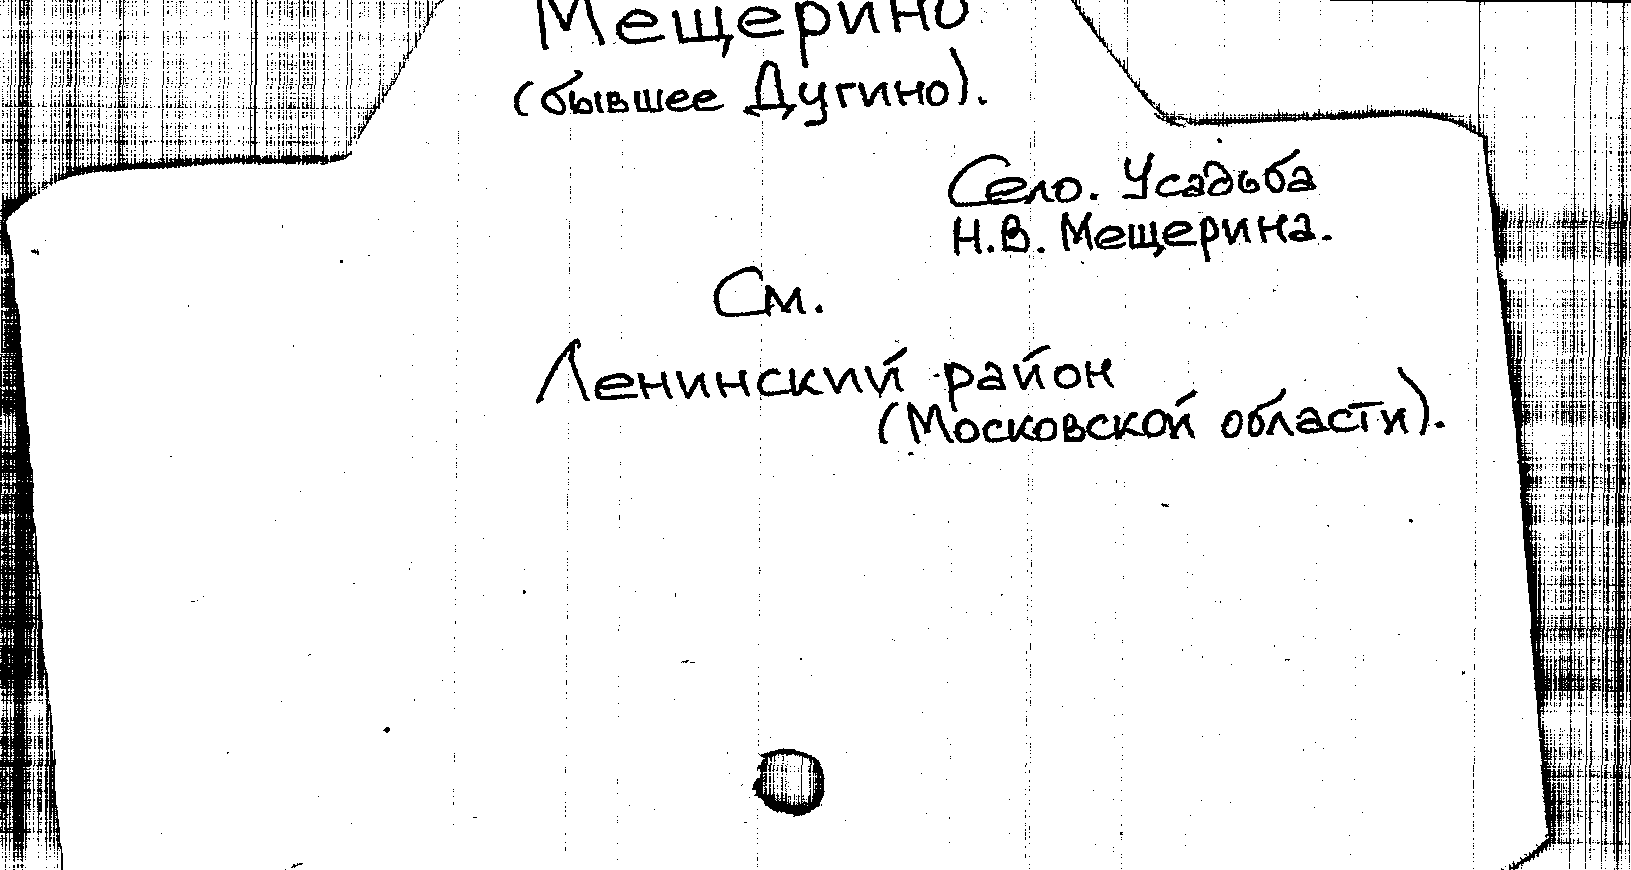 Мещерино
(бывшее Дугино).
Село. Усадьба
Н.В. Мещерина.
См.
Ленинский район
(Московской области).